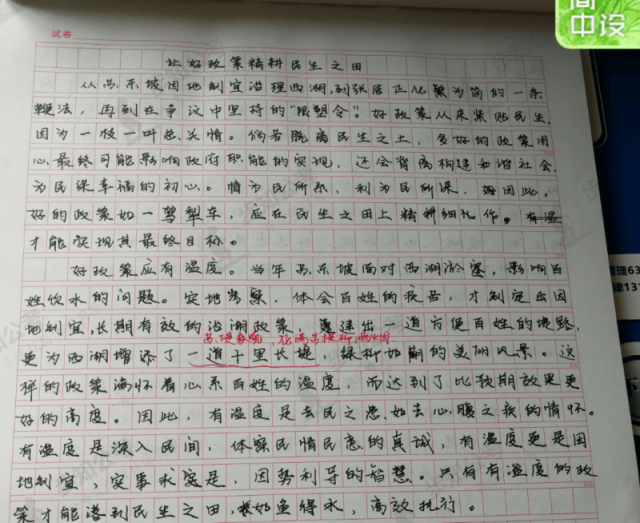 间
中没
试卷
让好政策精耕民生之田
从苏东坡因地制宜治理西湖,到张居正化繁为简的一条
鞭法,再到在争议中坚持的“限塑令”。好政策从来紧贴民生,
因为一枝一叶总关情。倘若脱离民生之土,多好的政策用
心最终可能影响政府职能的实现,还会背离构建和谐社会,
为民谋幸福的初心。情为民所系,利为民所谋,因此,
好的政策如一驾犁车,应在民生之田上精耕细作。有温
才能实现其最终目标。
好政策应有温度。当年苏东坡面对西湖淤塞,影响百
姓饮水的问题。实地考察,体会百姓的疾苦,才制定出因
地制宜,长期有效的治湖政策,建出一道方便百姓的堤路,
苏堤春晓,
更为西湖增添了一道十里长堤,绿柳如荫的美丽风景。这
样的政策满怀着心系百姓的温度,而达到了比预期效果更
好的高度。因此,有温度是去民之患,如去心腹之疾的情怀。
有温度是深入民间,体察民情民意的真诚,有温度更是因
地制宜,实事求是,因势利导的智慧。只有有温度的政
策才能落到民生之田,如鱼得水,高效执行。
理63
律131